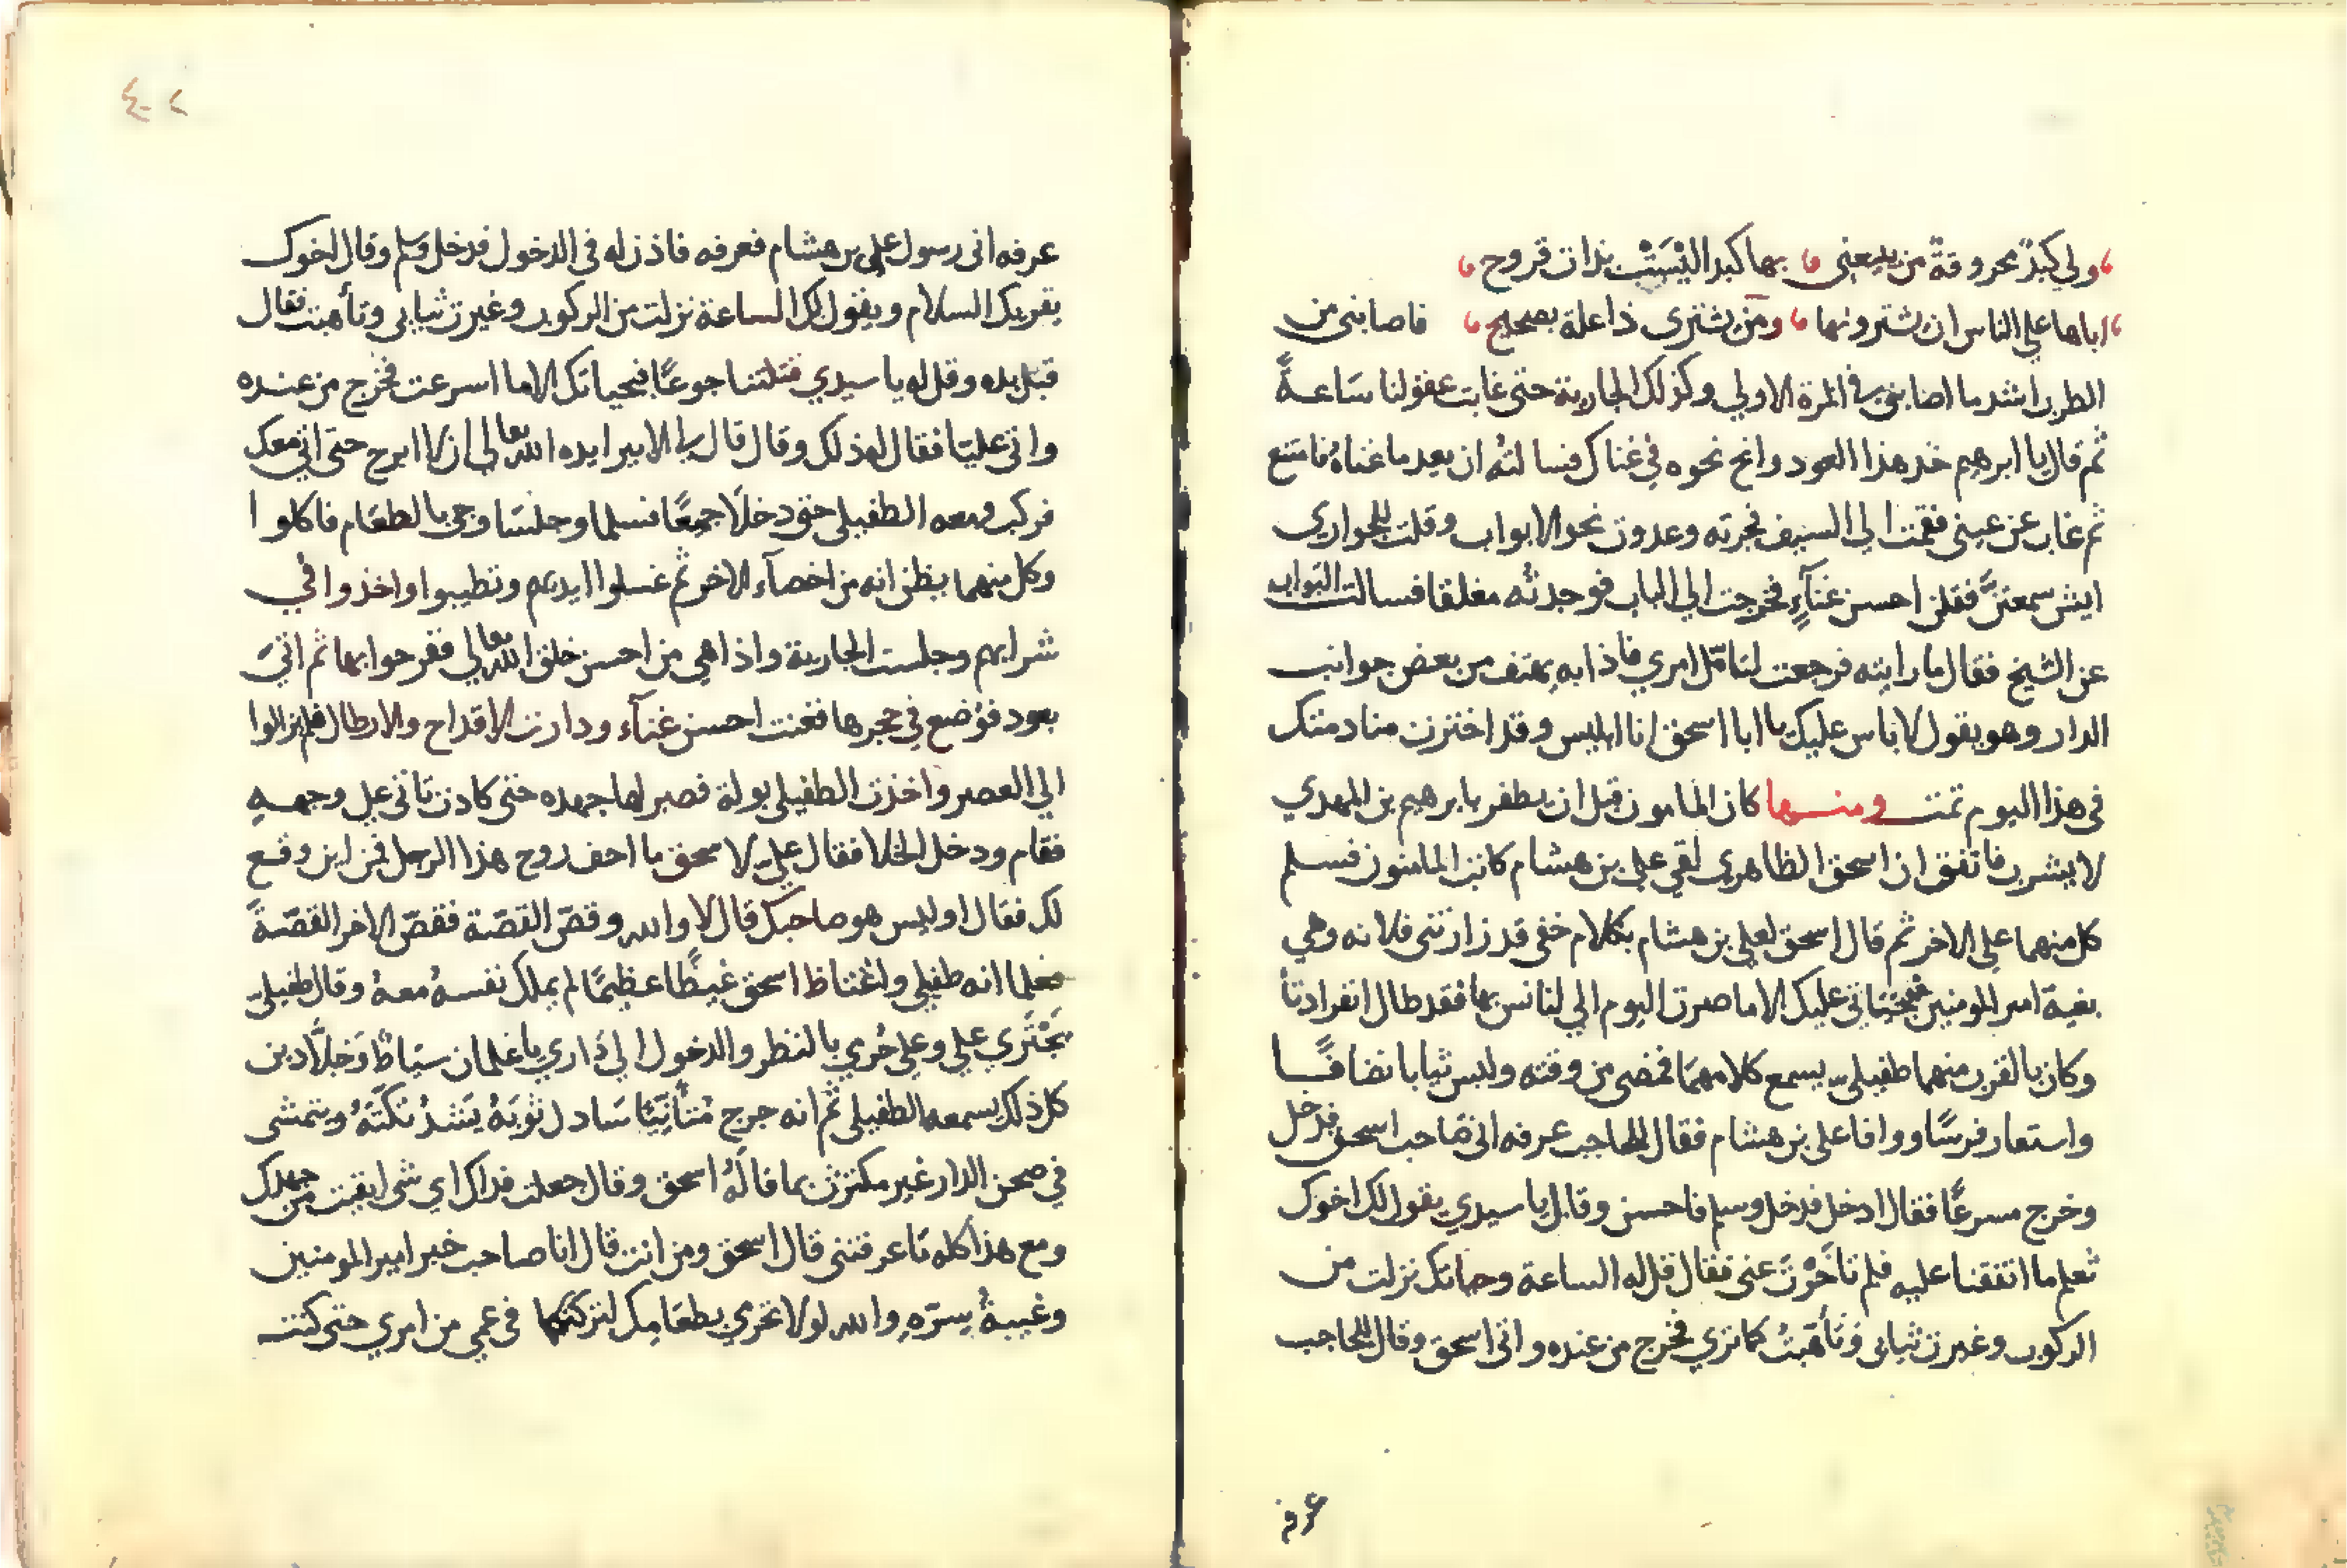 ولي كبدٌ محروقةٌ من يبيعني بها كبدا ليْسَتْ بذات قروح
اباها علي الناس ان يشترونها ومَن يشتري ذا علة بصحيح فاصابني من
الطرب اشد ما اصابني في المرة الاولي وكذلك الجارية حتى غابت عقولنا سَاعةً
ثم قال يا ابرهيم خذ هذا العود وانح نحوه في غناك فسالتُه ان يعيد ما غناهُ فامتنع
ثم غاب عن عيني فقمت الي السيف فجردته وعدوت نحو الابواب وقلت للجواري
ايش سمعتنَّ فقلن احسن غنآءٍ فخرجت الي الباب فوجدتُه مغلقا فسالت البواب
عن الشيخ فقال ما رايته فرجعت لتامّل امري فاذا به يهتف من بعض جوانب
الدار وهو يقول لا باس عليك يا ابا اسحق انا ابليس وقد اخترت منادمتك
في هذا اليوم تمت ومنها كان المامون قبل ان يظفر بابرهيم بن المهدي
لا يشرب فاتفق ان اسحق الظاهري لقي علي بن هشام كاتب المامون فسلم
كل منهما علي الاخر ثم قال اسحق لعلي بن هشام بكلام خفي قد زارتني فلانه وهي
بغية امير المومنين فبحياتي عليك الا ما صرت اليوم الي لنانس بها فقد طال انفرادنا
وكان بالقرب منهما طفيلي يسمع كلامهمَا فمضى من وقته ولبس ثيابا نضافًا
واستعار فرسًا ووافا علي بن هشام فقال للحاجب عرفه اني صَاحب اسحق فدخل
وخرج مسرعًا فقال ادخل فدخل وسلم فاحسن وقال يا سيدي يقول لك اخوك
تعلم ما اتفقنا عليه فلم تاَخَّرْتَ عني فقال قل له الساعة وحياتك نزلت من
الركوب وغيرت ثيابي وتأهبتُ كما ترَي فخرج من عنده واتى اسحق وقال للحاجب
عرفه
٤٠٢
عرفه اني رسول علي بن هشام فعرفه فاذن له في الدخول فدخل وسلم وقال اخوك
يقريك السلام ويقول لك الساعة نزلت من الركوب وغيرت ثيابي وتأهبت فقال
قبّل يده وقل له يا سيدي قتلتنا جوعًا فبحياتك الا ما اسرعت فخرج من عنده
واتى عليّا فقال له ذلك وقال قال لي الامير ايده الله تعالى ان لا ابرح حتى اتي معك
فركب ومعه الطفيلي حتى دخلَا جميعًا فسلما وجلسَا وجي بالطعَام فاكلوا
وكل منهما يظن انه من اخصآء الاخر ثم غسلوا ايديهم وتطيبوا واخذوا في
شرابهم وجلست الجارية واذا هي من احسن خلق الله تعالى ففرحوا بها ثم اتيَ
بعود فوُضع في حجرها فغنت احسن غنآء ودارت الاقداح والارطال فلم يزالوا
الي العصر واخذت الطفيلي بولة فصبر لها جهده حتى كادت تاتي علي وجهه
فقام ودخل الخلا فقال علي لاسحق ما اخف روح هذا الرجل فمن اين وقع
لك فقال اوليس هو صاحبك قال لا والله وقصّ القصّة فقصّ الاخر القصّةَ
فعلما انه طفيلي واغتاظ اسحق غيظًا عظيمًا لم يملك نفسهُ معهُ وقال طفيلي
يَجْتَرِي علي وعلي حُرمي بالنظر والدخول الي دَاري يا غلمان سيَاطٌ وَجلَّادين
كل ذلك يسمعه الطفيلي ثم انه خرج مُتأَنِيّا سَادل ثوبَهُ يَشدُّ تكّتَهُ ويتمشى
في صحن الدار غير مكترث بما قالَهُ اسحق وقال جعلت فداك اي شي ابقيت من جهدك
ومع هذا كله مَا عرفتني قال اسحق ومن انت قال انا صاحب خبر امير المومنين
وغيبةُ سِرّهِ والله لولا تحرمي بطعَامِك لتركتكما في عمي من امري حتى كنت